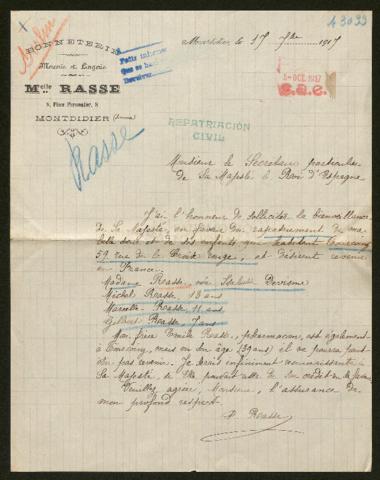 43099
BONNETERIE
Mercerie et Lingerie
Melle RASSE
8, Place Parmentier, 8
MONTDIDIER (Somme)
Montdidier le 17 7bre 1917
2-OCT. 1917
REPATRIACIÓN
CIVIL
Rasse
Monsieur le Secrétaire particulier
de Sa Majesté le Roi d'Espagne
J'ai l'honneur de solliciter la bienveillance
de Sa Majesté, en faveur du rapatriement de ma
belle sœur et de ses enfants qui habitent Tourcoing
59 rue de la Croix rouge, et désirent revenir
en France.
Madame Rasse née Isabelle Devisme
Michel Rasse 13 ans
Marcelle Rasse 11 ans
Gilbert Rasse 7 ans
Mon frère Emile Rasse, pharmacien, est également
à Tourcoing, mais vu son âge (39 ans) il ne pourra peut
être pas revenir. Je serais infiniment reconnaissante à
Sa Majesté, si Elle pouvait user de son crédit en sa faveur
Veuillez agréer, Monsieur, l'assurance de
mon profond respect.
Rasse